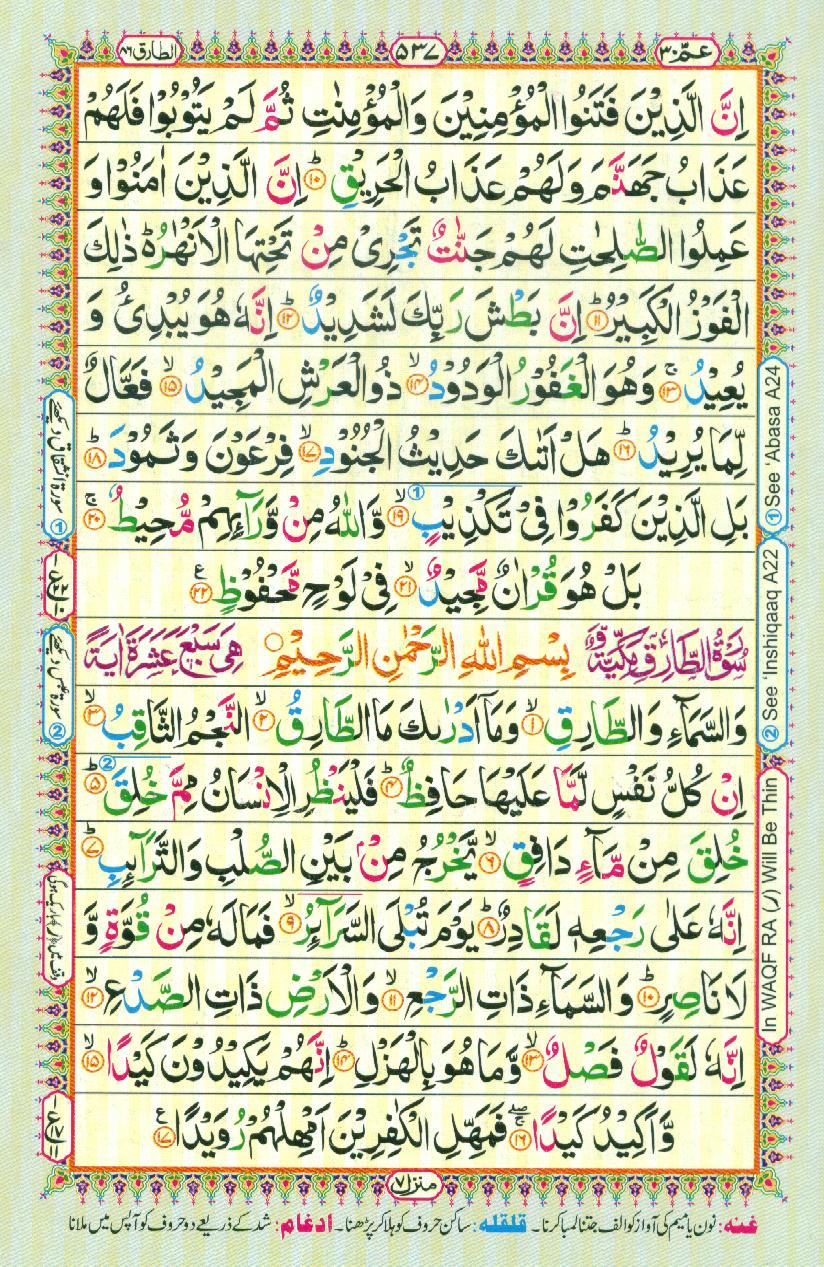 عمّ ۳۰
۵۳۷
الطارق ۸۶
اِنَّ الَّذِيْنَ فَتَنُوا الْمُؤْمِنِيْنَ وَالْمُؤْمِنٰتِ ثُمَّ لَمْ يَتُوْبُوْا فَلَهُمْ
عَذَابُ جَهَنَّمَ وَلَهُمْ عَذَابُ الْحَرِيْقِ ؕ۱۰ اِنَّ الَّذِيْنَ اٰمَنُوْا وَ
عَمِلُوا الصّٰلِحٰتِ لَهُمْ جَنّٰتٌ تَجْرِىْ مِنْ تَحْتِهَا الْاَنْهٰرُ ؕ ذٰلِكَ
الْفَوْزُ الْكَبِيْرُ ؕ۱۱ اِنَّ بَطْشَ رَبِّكَ لَشَدِيْدٌ ؕ۱۲ اِنَّهٗ هُوَ يُبْدِئُ وَ
يُعِيْدُ ۚ۱۳ وَهُوَ الْغَفُوْرُ الْوَدُوْدُ ۙ۱۴ ذُو الْعَرْشِ الْمَجِيْدُ ۙ۱۵ فَعَّالٌ
لِّمَا يُرِيْدُ ؕ۱۶ هَلْ اَتٰىكَ حَدِيْثُ الْجُنُوْدِ ۙ۱۷ فِرْعَوْنَ وَثَمُوْدَ ؕ۱۸
بَلِ الَّذِيْنَ كَفَرُوْا فِىْ تَكْذِيْبٍ ① ۙ۱۹ وَّاللّٰهُ مِنْ وَّرَآئِهِمْ مُّحِيْطٌ ۚ۲۰
بَلْ هُوَ قُرْاٰنٌ مَّجِيْدٌ ۙ۲۱ فِىْ لَوْحٍ مَّحْفُوْظٍ ۲۲ ع
سُوْرَةُ الطَّارِقِ مَكِّيَّةٌ بِسْمِ اللّٰهِ الرَّحْمٰنِ الرَّحِيْمِ هِىَ سَبْعَ عَشَرَةَ اٰيَةً
وَالسَّمَآءِ وَالطَّارِقِ ۙ۱ وَمَاۤ اَدْرٰىكَ مَا الطَّارِقُ ۙ۲ النَّجْمُ الثَّاقِبُ ۙ۳
اِنْ كُلُّ نَفْسٍ لَّمَّا عَلَيْهَا حَافِظٌ ؕ۴ فَلْيَنْظُرِ الْاِنْسَانُ مِمَّ خُلِقَ ② ؕ۵
خُلِقَ مِنْ مَّآءٍ دَافِقٍ ۙ۶ يَّخْرُجُ مِنْۢ بَيْنِ الصُّلْبِ وَالتَّرَآئِبِ ؕ۷
اِنَّهٗ عَلٰى رَجْعِهٖ لَقَادِرٌ ؕ۸ يَوْمَ تُبْلَى السَّرَآئِرُ ۙ۹ فَمَا لَهٗ مِنْ قُوَّةٍ وَّ
لَا نَاصِرٍ ؕ۱۰ وَالسَّمَآءِ ذَاتِ الرَّجْعِ ۙ۱۱ وَالْاَرْضِ ذَاتِ الصَّدْعِ ۙ۱۲
اِنَّهٗ لَقَوْلٌ فَصْلٌ ۙ۱۳ وَّمَا هُوَ بِالْهَزْلِ ؕ۱۴ اِنَّهُمْ يَكِيْدُوْنَ كَيْدًا ۙ۱۵
وَّاَكِيْدُ كَيْدًا ۚۖ۱۶ فَمَهِّلِ الْكٰفِرِيْنَ اَمْهِلْهُمْ رُوَيْدًا ۱۷ ع
① See ‘Abasa A24
② See ‘Inshiqaaq A22
In WAQF RA (ر) Will Be Thin
① سورۃ انشقاق دیکھئے
② سورۃ عبس دیکھئے
منزل ۷
غنه: نون یا میم کی آواز کو الف جتنا لمبا کرنا۔ قلقله: ساکن حروف کو ہلا کر پڑھنا۔ ادغام: شد کے ذریعے دو حروف کو آپس میں ملانا